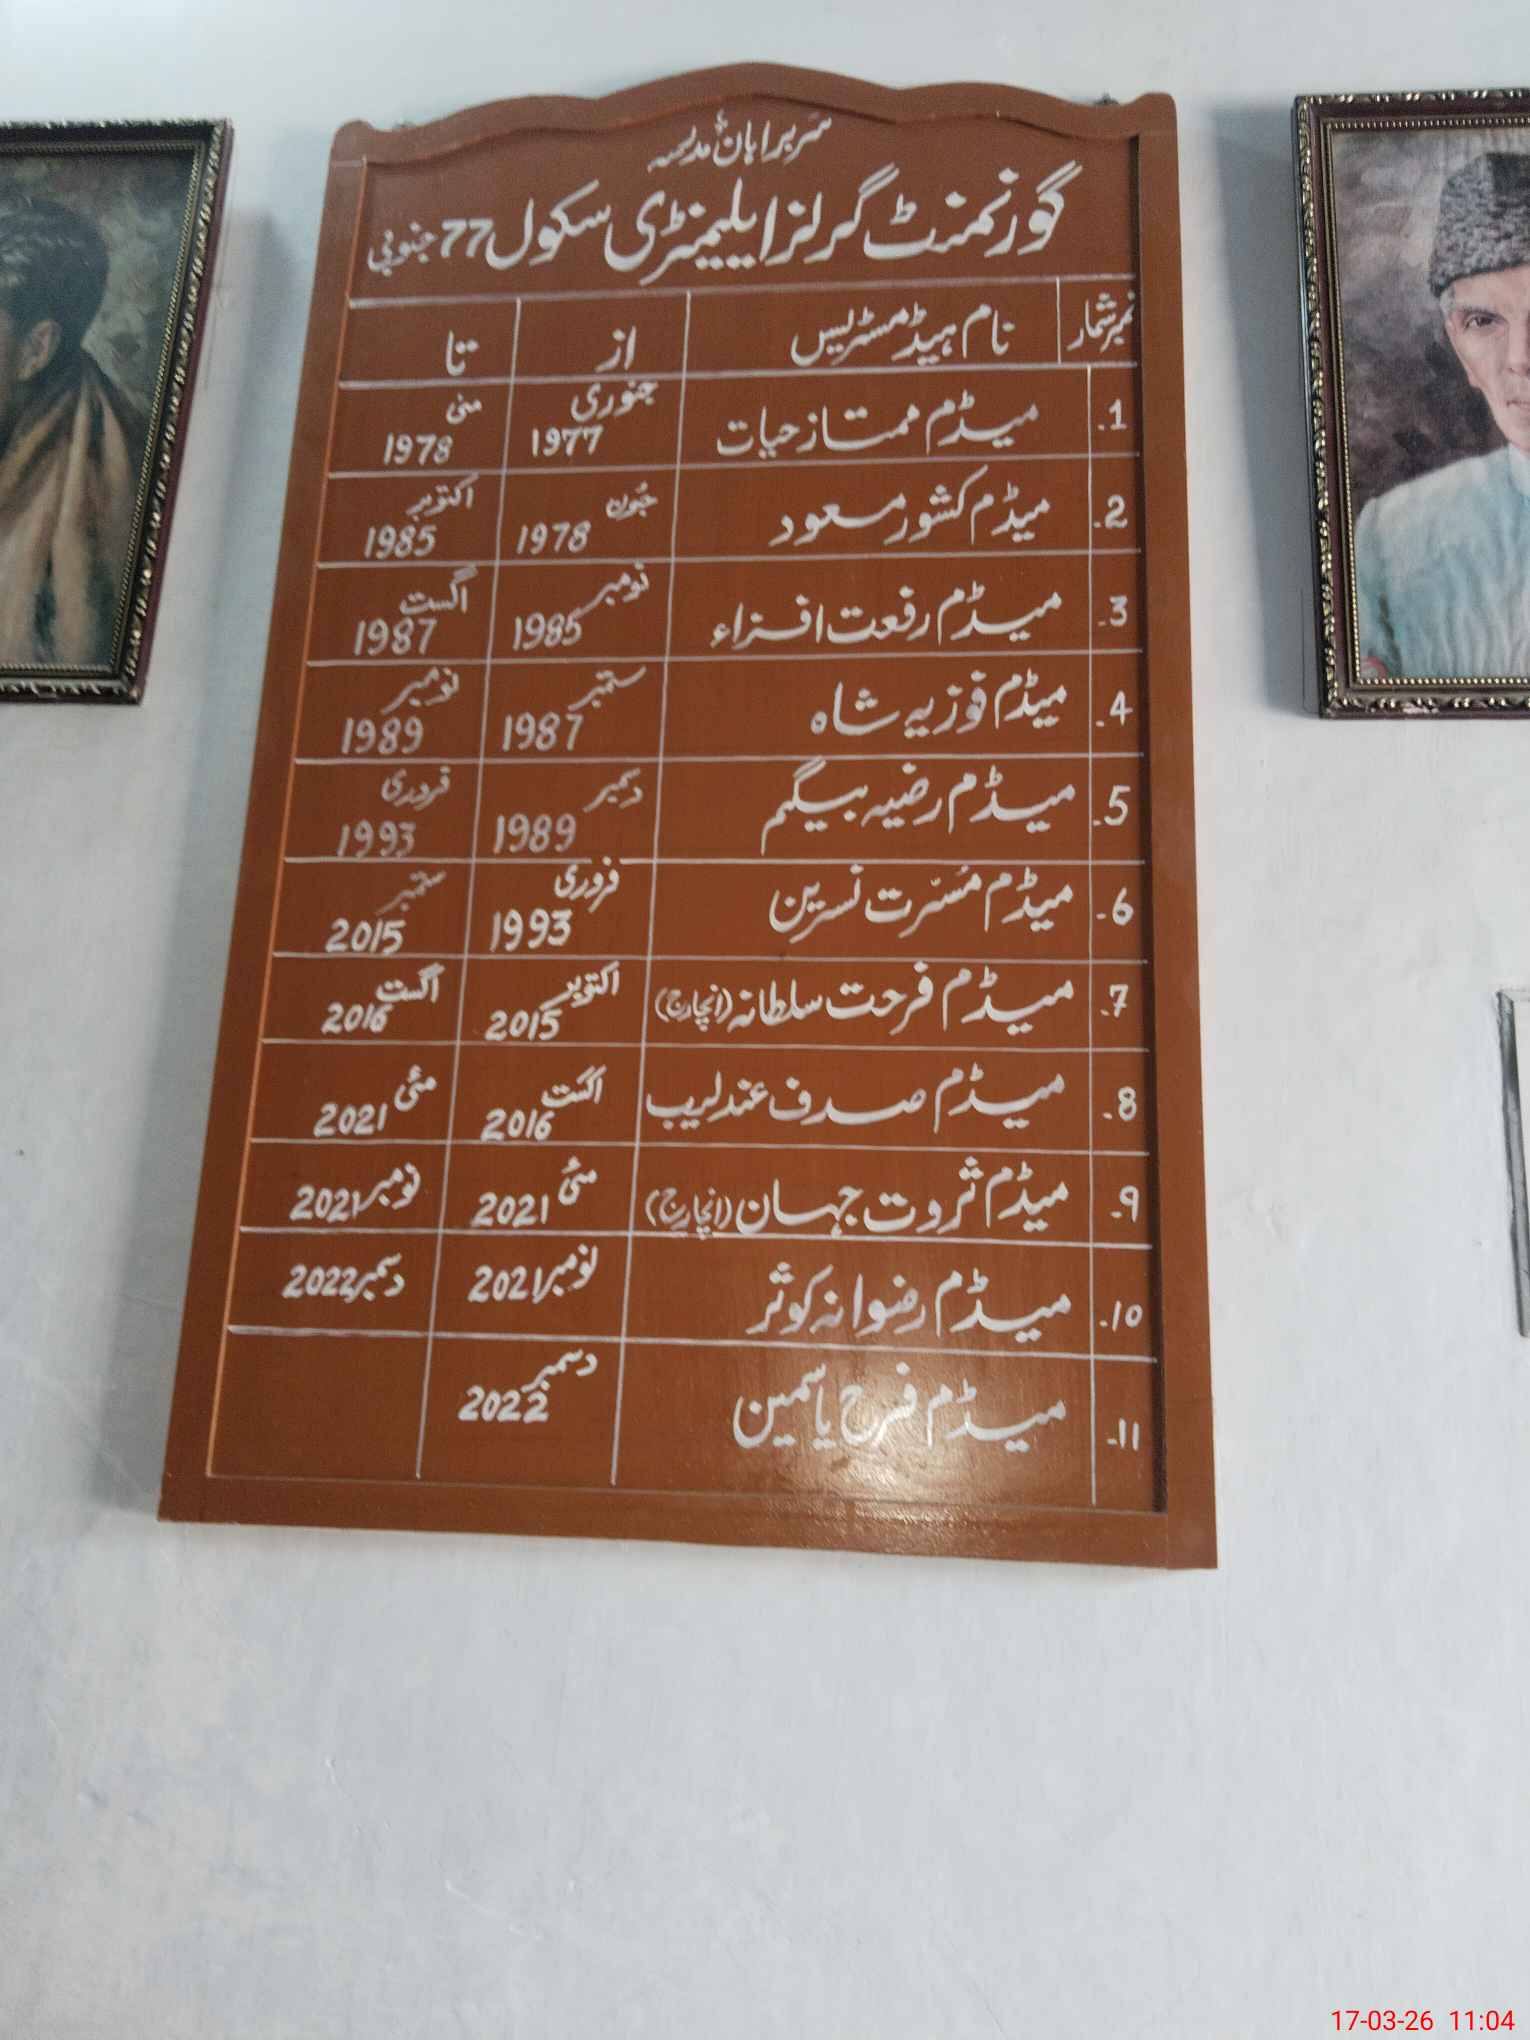 سربراہانِ مدرسہ
گورنمنٹ گرلز ایلیمنٹری سکول 77 جنوبی
نمبر شمار نام ہیڈ مسٹریس از تا
1۔ میڈم ممتاز حیات جنوری 1977 مئی 1978
2۔ میڈم کشور مسعود جون 1978 اکتوبر 1985
3۔ میڈم رفعت افزاء نومبر 1985 اگست 1987
4۔ میڈم فوزیہ شاہ ستمبر 1987 نومبر 1989
5۔ میڈم رضیہ بیگم دسمبر 1989 فروری 1993
6۔ میڈم مسرّت نسرین فروری 1993 ستمبر 2015
7۔ میڈم فرحت سلطانہ (انچارج) اکتوبر 2015 اگست 2016
8۔ میڈم صدف عندلیب اگست 2016 مئی 2021
9۔ میڈم ثروت جہان (انچارج) مئی 2021 نومبر 2021
10۔ میڈم رضوانہ کوثر نومبر 2021 دسمبر 2022
11۔ میڈم فرح یاسمین دسمبر 2022
17-03-26 11:04